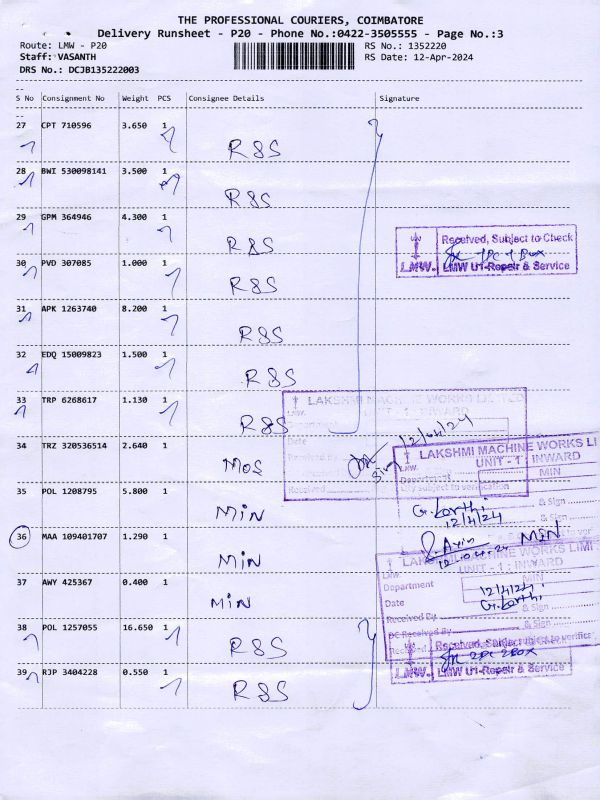 THE PROFESSIONAL COURIERS, COIMBATORE
Delivery Runsheet - P20 - Phone No.:0422-3505555 - Page No.:3
Route: LMW - P20 RS No.: 1352220
Staff: VASANTH RS Date: 12-Apr-2024
DRS No.: DCJB135222003
S No Consignment No Weight PCS Consignee Details Signature
27 CPT 710596 3.650 1
R&S
28 BWI 530098141 3.500 1
R&S
29 GPM 364946 4.300 1
R&S
Received, Subject to Check
LMW. LMW U1-Repair & Service
30 PVD 307085 1.000 1
R&S
31 APK 1263740 8.200 1
R&S
32 EDQ 15009823 1.500 1
R&S
33 TRP 6268617 1.130 1
R&S
LAKSHMI MACHINE WORKS LIMITED
UNIT - 1 : INWARD
Date
12/04/24
34 TRZ 320536514 2.640 1
MOS
LAKSHMI MACHINE WORKS LI
UNIT - 1 : INWARD
LMW.
Department MIN
subject to verification
35 POL 1208795 5.800 1
MIN
& Sign
12/4/24
36 MAA 109401707 1.290 1
MIN
MIN
12.04.24
LAKSHMI MACHINE WORKS LIMI
UNIT - 1 : INWARD
LMW.
37 AWY 425367 0.400 1
MIN
Department MIN
Date 12/4/24
Received By & Sign
DC Received By
38 POL 1257055 16.650 1
R&S
Received, Subject to
39 RJP 3404228 0.550 1
R&S
LMW. LMW U1-Repair & Service